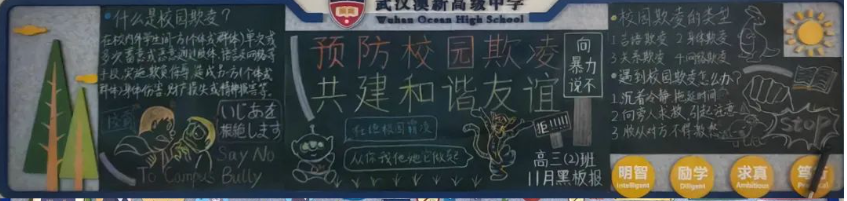 武汉澳新高级中学
Wuhan Ocean High School
什么是校园欺凌？
在校内外学生间一方（个体或群体）单次或
多次蓄意或恶意通过肢体、语言及网络等
手段，实施欺负、侮辱，造成另一方（个体或
群体）身体伤害、财产损失或精神损害等。
いじめを
根絶します
Say No
To Campus Bully
预防校园欺凌
共建和谐友谊
向
暴力
说不
杜绝校园霸凌
从你我他她它做起
拒!!!!
高三(2)班
11月黑板报
校园欺凌的类型
1 言语欺凌 2 身体欺凌
3 关系欺凌 4 网络欺凌
遇到校园欺凌怎么办？
1 沉着冷静 拖延时间
2 向旁人求救，引起注意
3 服从对方 不作激怒
stop
明智
Intelligent
励学
Diligent
求真
Ambitious
笃